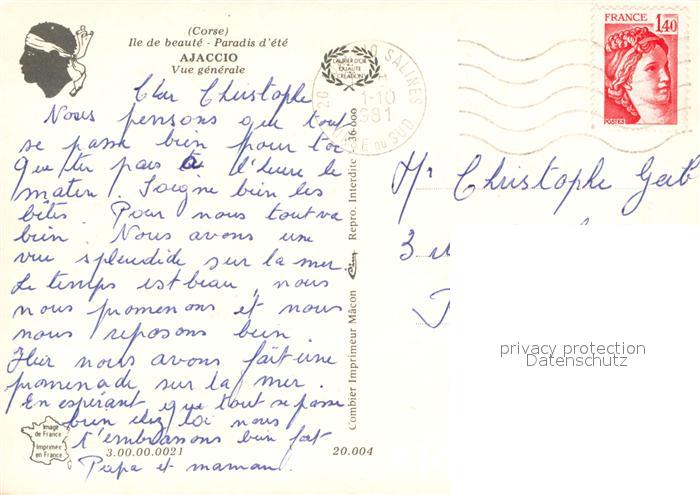 (Corse)
Ile de beauté - Paradis d'été
AJACCIO
Vue générale
Cher Christophe
Nous pensons que tout
se passe bien pour toi
que tu pars à l'heure le
matin. Soigne bien les
bêtes. Pour nous tout va
bien. Nous avons une
vue splendide sur la mer
Le temps est beau, nous
nous promenons et nous
nous reposons bien.
Hier nous avons fait une
promenade sur la mer.
En espérant que tout se passe
bien chez toi nous
t'embrassons bien fort
Papa et maman.
Image
de France
Imprimée
en France
3.00.00.0021
20.004
Combier Imprimeur Mâcon Cim Repro. Interdite 36-000
LAURIER D'OR
QUALITE
CREATION
20 SALINES
1-10
1981
CORSE DU SUD
FRANCE 1,40
POSTES
Mr Christophe
3
privacy protection
Datenschutz